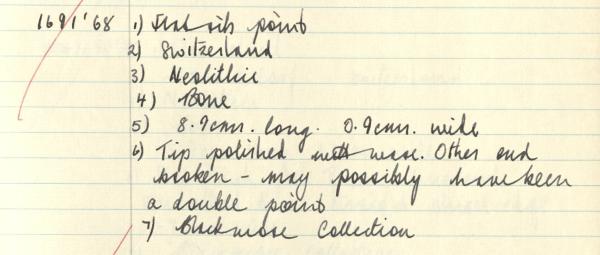 1691'68 1) point
2) Switzerland
3) Neolithic
4) Bone
5) 8.9cms. long. 0.9cms. wide
6) Tip polished with wear. Other end
broken - may possibly have been
a double point
7) Blackmore Collection